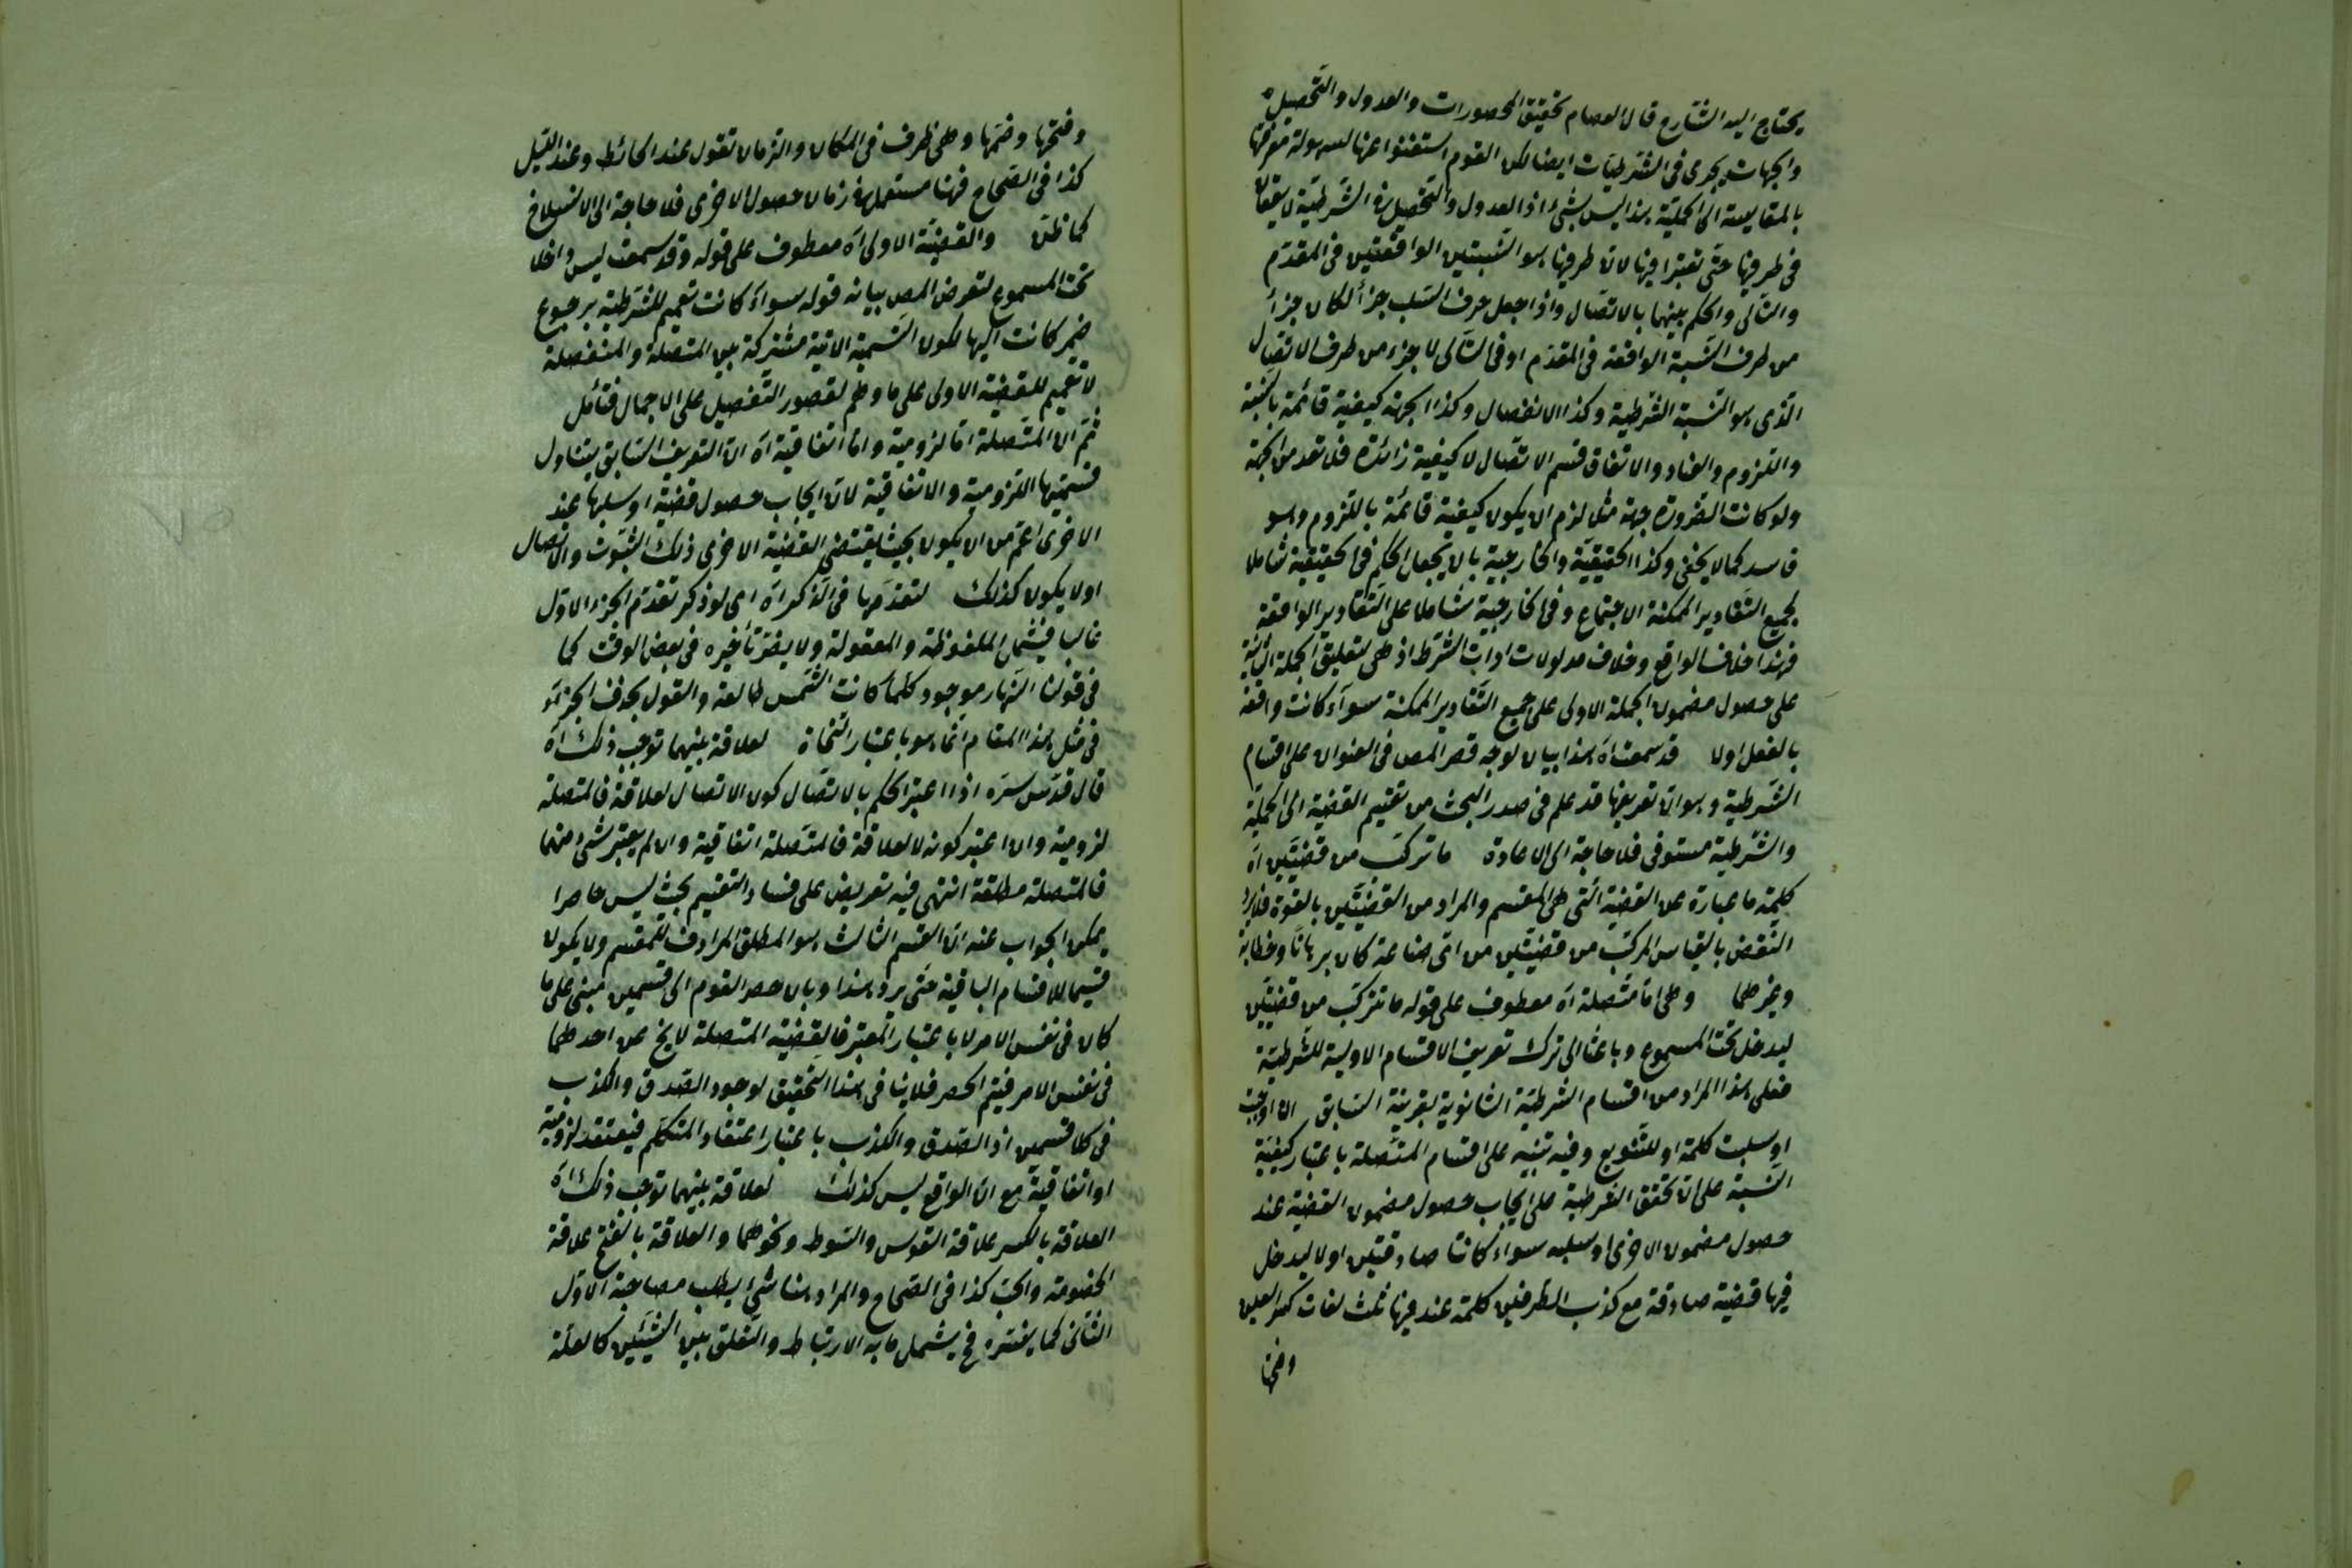 يحتاج اليه الشارح قال العصام تحقيق المحصورات والعدول والتحصيل
والجهات يجرى فى الشرطيات ايضا لكن القوم استغنوا عنها لسهولة معرفتها
بالمقايسة الى الحملية هذا ليس بشئ اذ العدول والتحصيل فى الشرطية لا يتعقل
فى طرفيها حتى تعتبرا فيها لان طرفيها هو النسبتين الواقعتين فى المقدم
والتالى والحكم بينهما بالاتصال واذا جعل حرف السلب جزأ لكان جزأ
من طرف النسبة الواقعة فى المقدم او فى التالى لا جزء من طرف الاتصال
الذى هو النسبة الشرطية وكذا الانفصال وكذا الجهة كيفية قائمة بالنسبة
واللزوم والعناد والاتفاق قسم الاتصال لا كيفية زائدة فلا تعد من الجهة
ولو كانت الضرورة جهة مثلا لزم ان يكون كيفية قائمة باللزوم وهو
فاسد كما لا يخفى وكذا الحقيقية والخارجية بان يجعل الحكم فى الحقيقية شاملا
لجميع التقادير الممكنة الاجتماع وفى الخارجية شاملا على التقادير الواقعة
فهذا خلاف الواقع وخلاف مدلولات ادات الشرط اذ هى لتعليق الجملة الثانية
على حصول مضمون الجملة الاولى على جميع التقادير الممكنة سواء كانت واقعة
بالفعل اولا قد سمعت اه هذا بيان لوجه قصر المص فى العنوان على اقسام
الشرطية وهو ان تعريفها قد علم فى صدر البحث من تقسيم القضية الى الحملية
والشرطية مستوفى فلا حاجة الى الاعادة ما تركب من قضيتين اه
كلمة ما عبارة عن القضية التى هى المقسم والمراد من القضيتين بالقوة فلا يرد
النقض بالقياس المركب من قضيتين من اى صناعة كان برهانا وخطابة
وغيرهما وهى اما متصلة اه معطوف على قوله ما تتركب من قضيتين
ليدخل تحت المسموع وباعثا الى ترك تعريف الاقسام الاولية للشرطية
فعلى هذا المراد من اقسام الشرطية الثانوية بقرينة السابق ان اوجبت
او سلبت كلمة او للتنويع وفيه تنبيه على اقسام المتصلة باعتبار كيفية
النسبة على ان تحقق الشرطية على ايجاب حصول مضمون القضية عند
حصول مضمون الاخرى او سلبه سواء كانتا صادقتين اولا ليدخل
فيها قضية صادقة مع كذب الطرفين كلمة عند فيها ثلث لغات كسر العين
وفتحها
وفتحها وضمها وهى ظرف فى المكان والزمان تقول عند الحائط وعند الليل
كذا فى الصحاح فهنا مستعملة فى زمان حصول الاخرى فلا حاجة الى الانسلاخ
كما ظن والقضية الاولى اه معطوف على قوله وقد سمعت ليس داخلا
تحت المسموع لتعرض المص بيانه قوله سواء كانت تعميم للشرطية برجوع
ضمير كانت اليها لكون التسمية الاتية مشتركة بين المتصلة والمنفصلة
لا تعميم للقضية الاولى على ما وهم لقصور التفصيل على الاجمال فتأمل
ثم ان المتصلة اما لزومية واما اتفاقية اه ان التعريف السابق يتناول
قسميها اللزومية والاتفاقية لان ايجاب حصول قضية او سلبها عند
الاخرى اعم من ان يكون بحيث يقتضى القضية الاخرى ذلك الثبوت والاتصال
اولا يكون كذلك لتقدمها فى الذكر اه اى لو ذكر تقدم الجزء الاول
غالبا فيشمل الملفوظة والمعقولة ولا يضر تأخيره فى بعض الوقت كما
فى قولنا النهار موجود كلما كانت الشمس طالعة والقول بحذف الجزء
فى مثل هذا المقام انما هو باعتبار النحاة لعلاقة بينهما توجب ذلك اه
قال قدس سره اذا اعتبر الحكم بالاتصال كون الاتصال لعلاقة فالمتصلة
لزومية وان اعتبر كونه لا لعلاقة فالمتصلة اتفاقية وان لم يعتبر شئ منهما
فالمتصلة مطلقة انتهى فيه تعريض على فساد التقسيم بحيث ليس حاصرا
يمكن الجواب عنه ان القسم الثالث هو المطلق المرادف للمقسم ولا يكون
قسيما للاقسام الباقية حتى يرد هذا وبان حصر القوم الى قسمين مبنى على ما
كان فى نفس الامر لا باعتبار المعتبر فالقضية المتصلة لا يخ عن احدهما
فى نفس الامر فيتم الحصر فلا ينافى هذا التحقيق لوجود الصدق والكذب
فى كلا قسمين اذ الصدق والكذب باعتبار اعتقاد المتكلم فيعتقد لزومية
او اتفاقية مع ان الواقع ليس كذلك لعلاقة بينهما توجب ذلك اه
العلاقة بالكسر علاقة القوس والسوط ونحوهما والعلاقة بالفتح علاقة
الخصومة والحب كذا فى الصحاح والمراد هنا شئ يطلب مصاحبة الاول
الثانى كما يفسره فح يشمل ما به الارتباط والتعلق بين الشيئين كالعلة